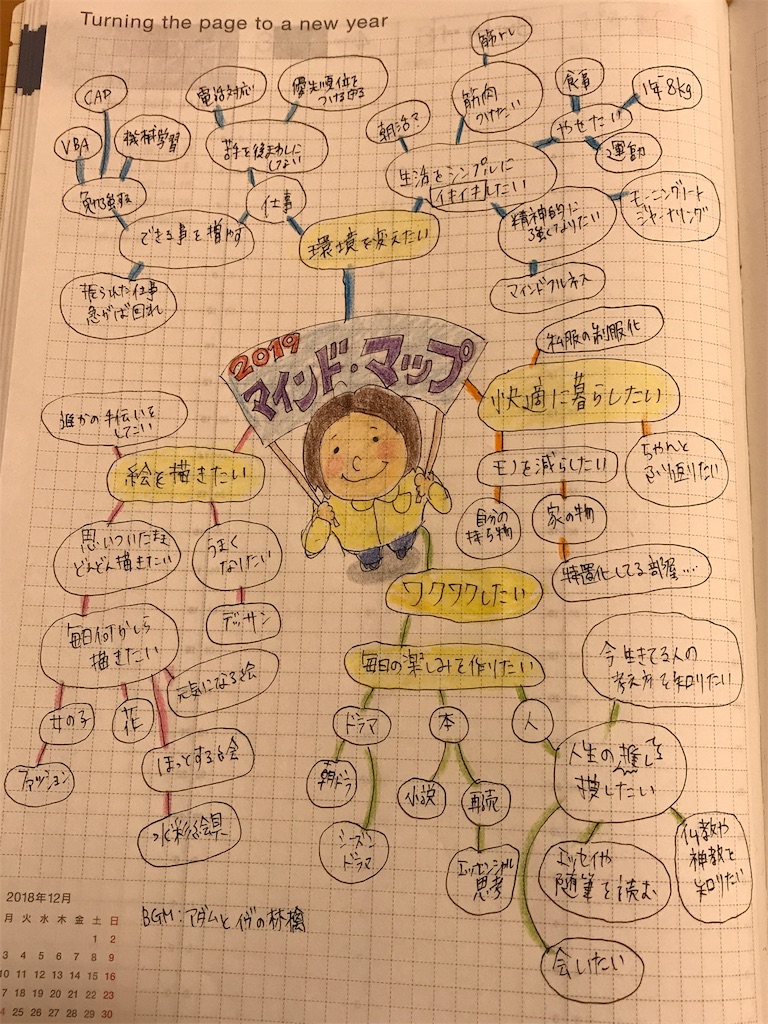 Turning the page to a new year
筋トレ
CAP
電話対応
優先順位を
つける・守る
筋肉
つけたい
食事
1年8kg
VBA
機械学習
苦手を後まわしに
しない
朝活?
やせたい
運動
勉強する
仕事
生活をシンプルに
イキイキしたい
できる事を増やす
環境を変えたい
精神的に
強くなりたい
モーニングノート
ジャーナリング
振られた仕事
急がば回れ
マインドフルネス
2019
マインド・マップ
私服の制服化
快適に暮らしたい
誰かの手伝いを
してこい
絵を描きたい
モノを減らしたい
ちゃんと
ふり返りたい
自分の
持ち物
家の物
思いついたまま
どんどん描きたい
うまく
なりたい
特置化してる部屋....
ワクワクしたい
デッサン
毎日何かしら
描きたい
毎日の楽しみを作りたい
今生きてる人の
考え方を知りたい
元気になる絵
女の子
花
ドラマ
本
人
ファッション
ほっとする絵
朝ドラ
小説
再読
人生の推しを
捜したい
水彩絵具
シーズン
ドラマ
エッセンシャル
思考
エッセイや
随筆を読む
仏教や
神教を
知りたい
会いたい
BGM:アダムとイヴの林檎
2018年12月
月 火 水 木 金 土 日
1 2
3 4 5 6 7 8 9
10 11 12 13 14 15 16
17 18 19 20 21 22 23
24 25 26 27 28 29 30